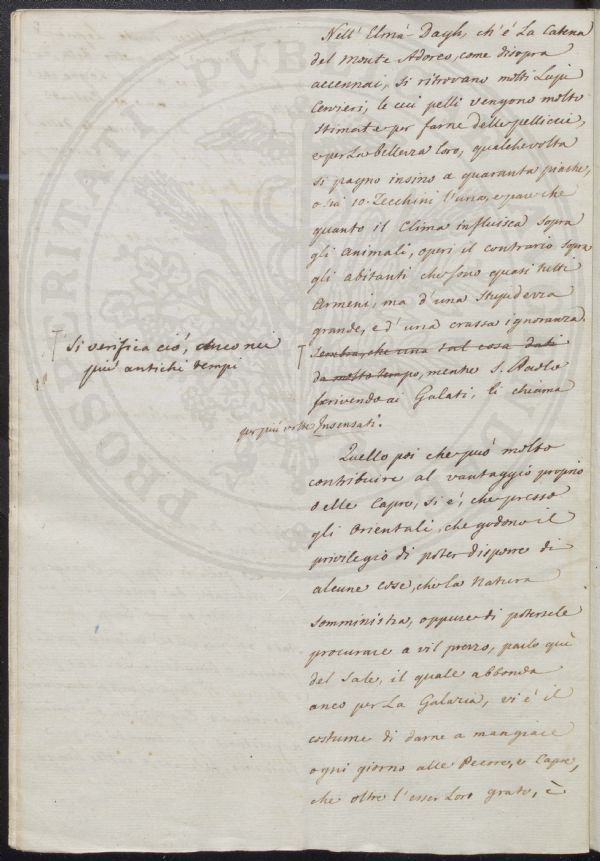 Nell' Elmà-Dagh, ch'è La Catena
del monte Adoreo, come disopra
accennai, si ritrovano molti Lupi
Cervieri, le cui pelli vengono molto
stimate per farne delle pelliccie,
e per La bellezza loro, qualchevolta
si pagano insino a quaranta piastre,
o sia 10. Zecchini l'una, e pare che
quanto il Clima influisca sopra
gli animali, operi il contrario sopra
gli abitanti che sono quasi tutti
Armeni, ma d'una stupidezza
grande, e d'una crassa ignoranza.
sembra, che una tal cosa dati
da molto tempo, mentre S. Paolo
scrivendo ai Galati, li chiama
per più volte Insensati.
Si verifica ciò, anco nei
più antichi tempi
Quello poi che può molto
contribuire al vantaggio proprio
delle Capre, si è, che presso
gli Orientali, che godono il
privilegio di poter disporre di
alcune cose, che la Natura
somministra, oppure di potersele
procurare a vil prezzo, parlo quì
del sale, il quale abbonda
anco per La Galazia, vi è il
costume di darne a mangiare
ogni giorno alle Pecore, e Capre,
che oltre l'esser Loro grato, è
PROSPERITATI PUB